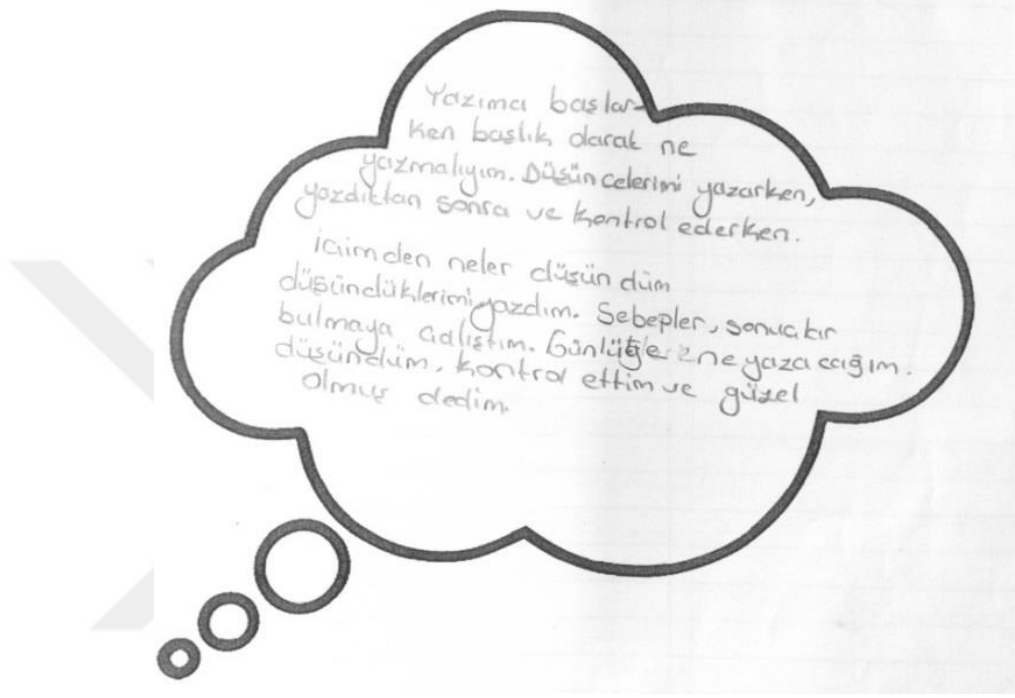 Yazıma başlar-
ken başlık olarak ne
yazmalıyım. Düşüncelerimi yazarken,
yazdıktan sonra ve kontrol ederken.
İçimden neler düşündüm
düşündüklerimi yazdım. Sebepler, sonuçlar
bulmaya çalıştım. Günlüğe ne yazacağım.
düşündüm, kontrol ettim ve güzel
olmuş dedim.